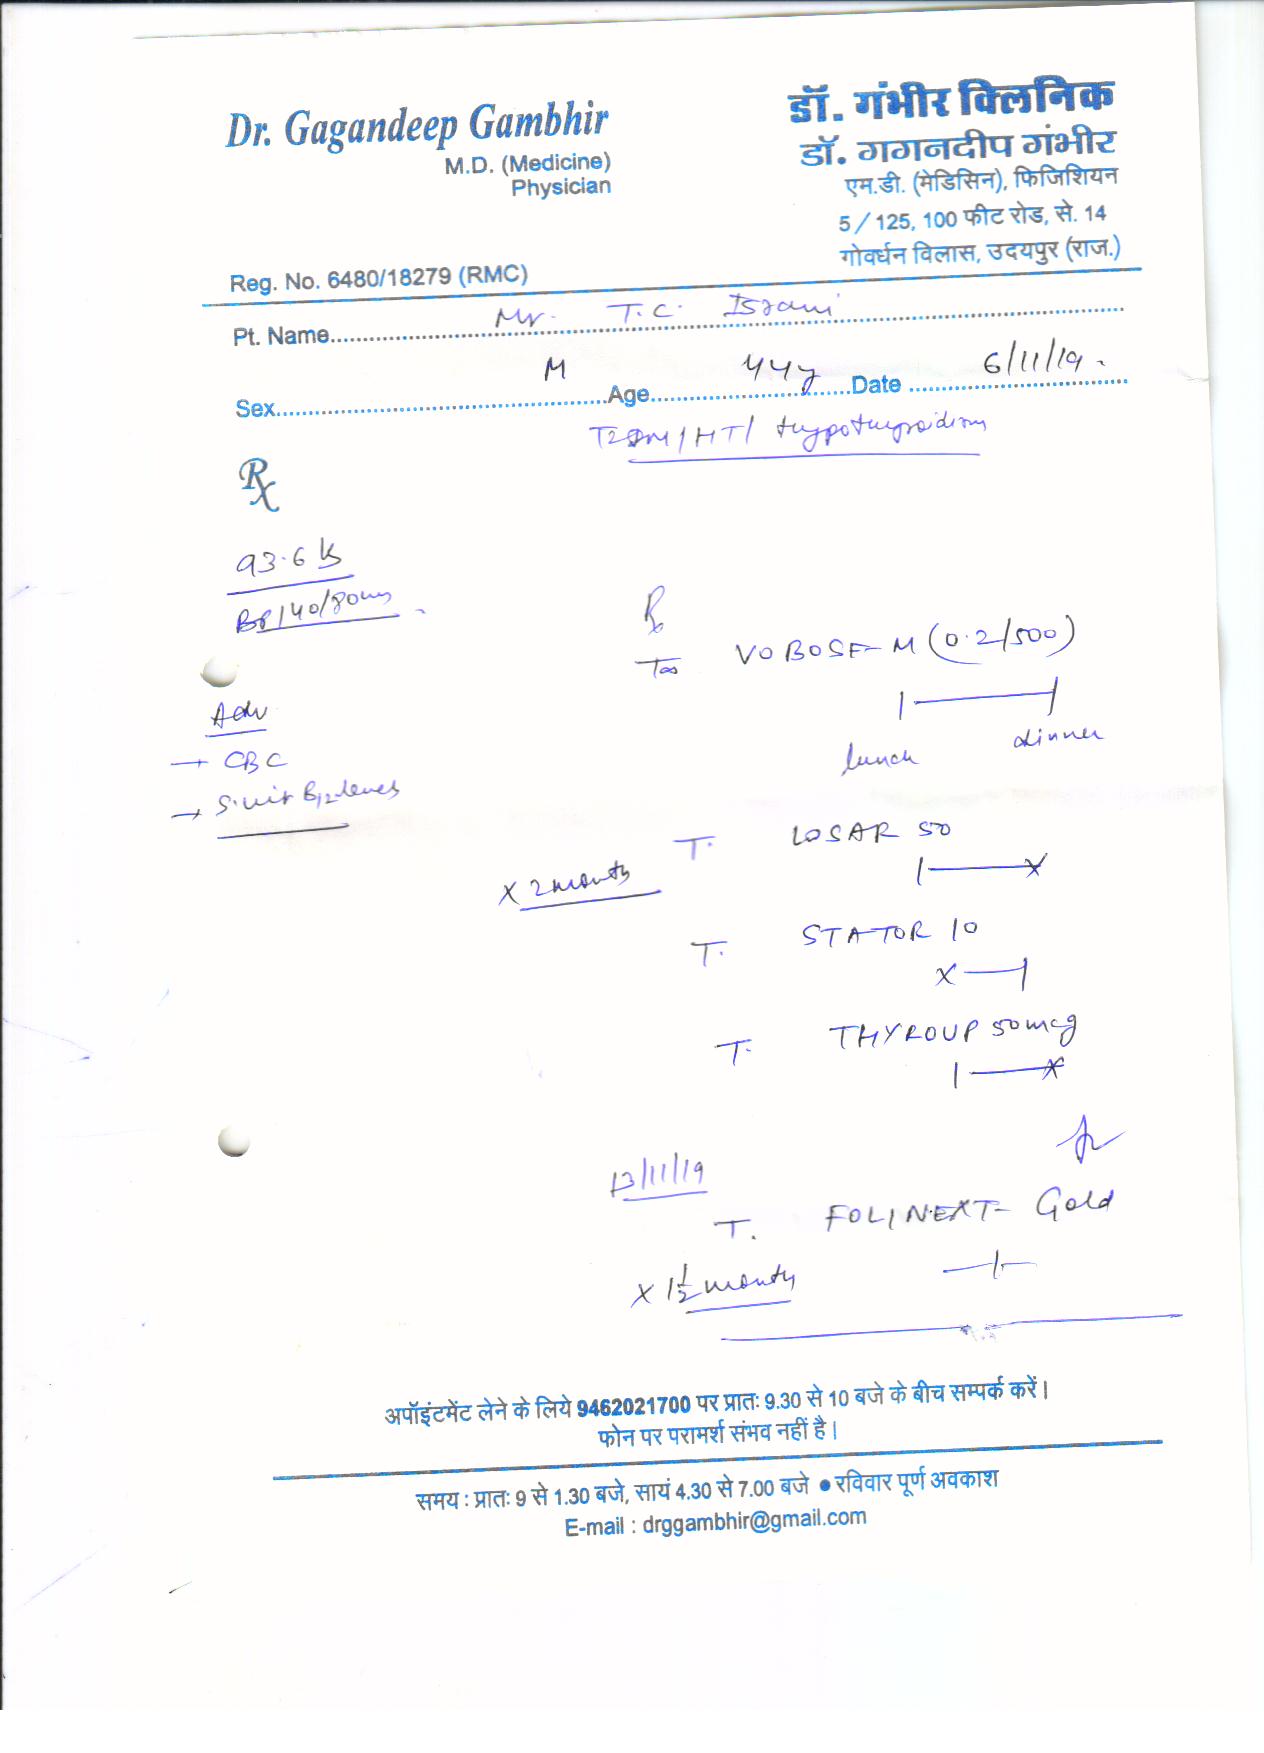 Dr. Gagandeep Gambhir
M.D. (Medicine)
Physician
Reg. No. 6480/18279 (RMC)
डॉ. गंभीर क्लिनिक
डॉ. गगनदीप गंभीर
एम.डी. (मेडिसिन), फिजिशियन
5/125, 100 फीट रोड, से. 14
गोवर्धन विलास, उदयपुर (राज.)
Pt. Name Mr. T.C. Israni
Sex M Age 44y Date 6/11/19.
T2DM/HT/Hypothyroidism
Rx
93.6 kg
BP 140/80
Adv
→ CBC
→ S. vit B12 levels
Rx
Tab VOBOSE-M (0.2/500)
lunch dinner
T. LOSAR 50
x 2 month
T. STATOR 10
x
T. THYROUP 50mcg
x
13/11/19
T. FOLINEXT-Gold
x 1 1/2 month
अपॉइंटमेंट लेने के लिये 9462021700 पर प्रातः 9.30 से 10 बजे के बीच सम्पर्क करें।
फोन पर परामर्श संभव नहीं है।
समय : प्रातः 9 से 1.30 बजे, सायं 4.30 से 7.00 बजे ● रविवार पूर्ण अवकाश
E-mail : drggambhir@gmail.com